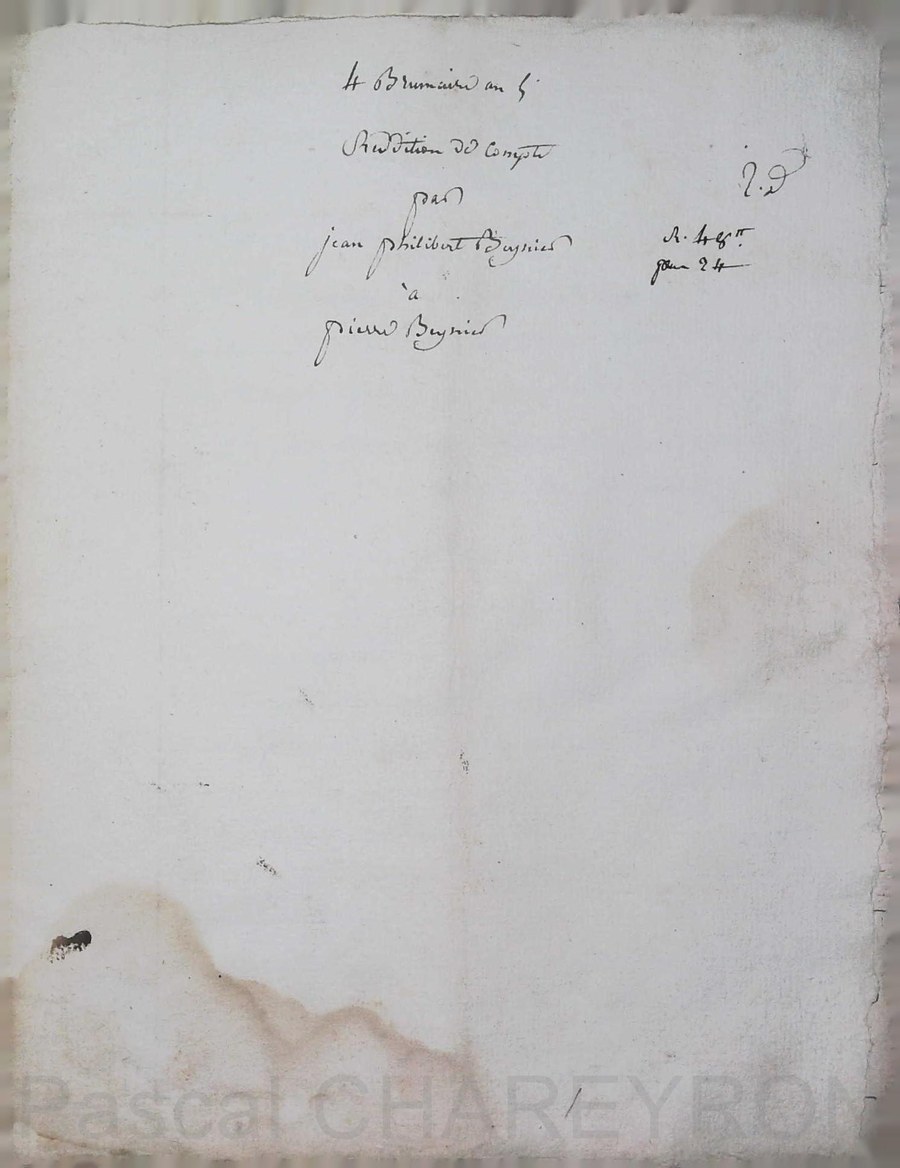 4 Brumaire an 5
Reddition de Compte
par
jean philibert Beynier
à
pierre Beynier
2. d
R. 48 tt
pour 24
Pascal CHAREYRON